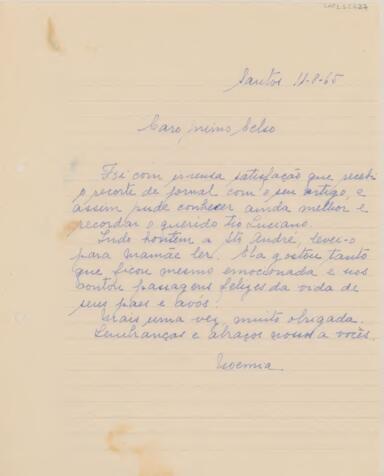 Santos 11-8-65
Caro primo Celso
Foi com imensa satisfação que recebi
o recorte de jornal com o seu artigo, e
assim pude conhecer ainda melhor e
recordar o querido tio Lusiano.
Indo hontem a Sto André, levei-o
para Mamãe ler. Ela gostou tanto
que ficou mesmo emocionada e nos
contou passagens felizes da vida de
seus pais e avós.
Mais uma vez, muito obrigada.
Lembranças e abraços nossos a vocês.
Noemia.